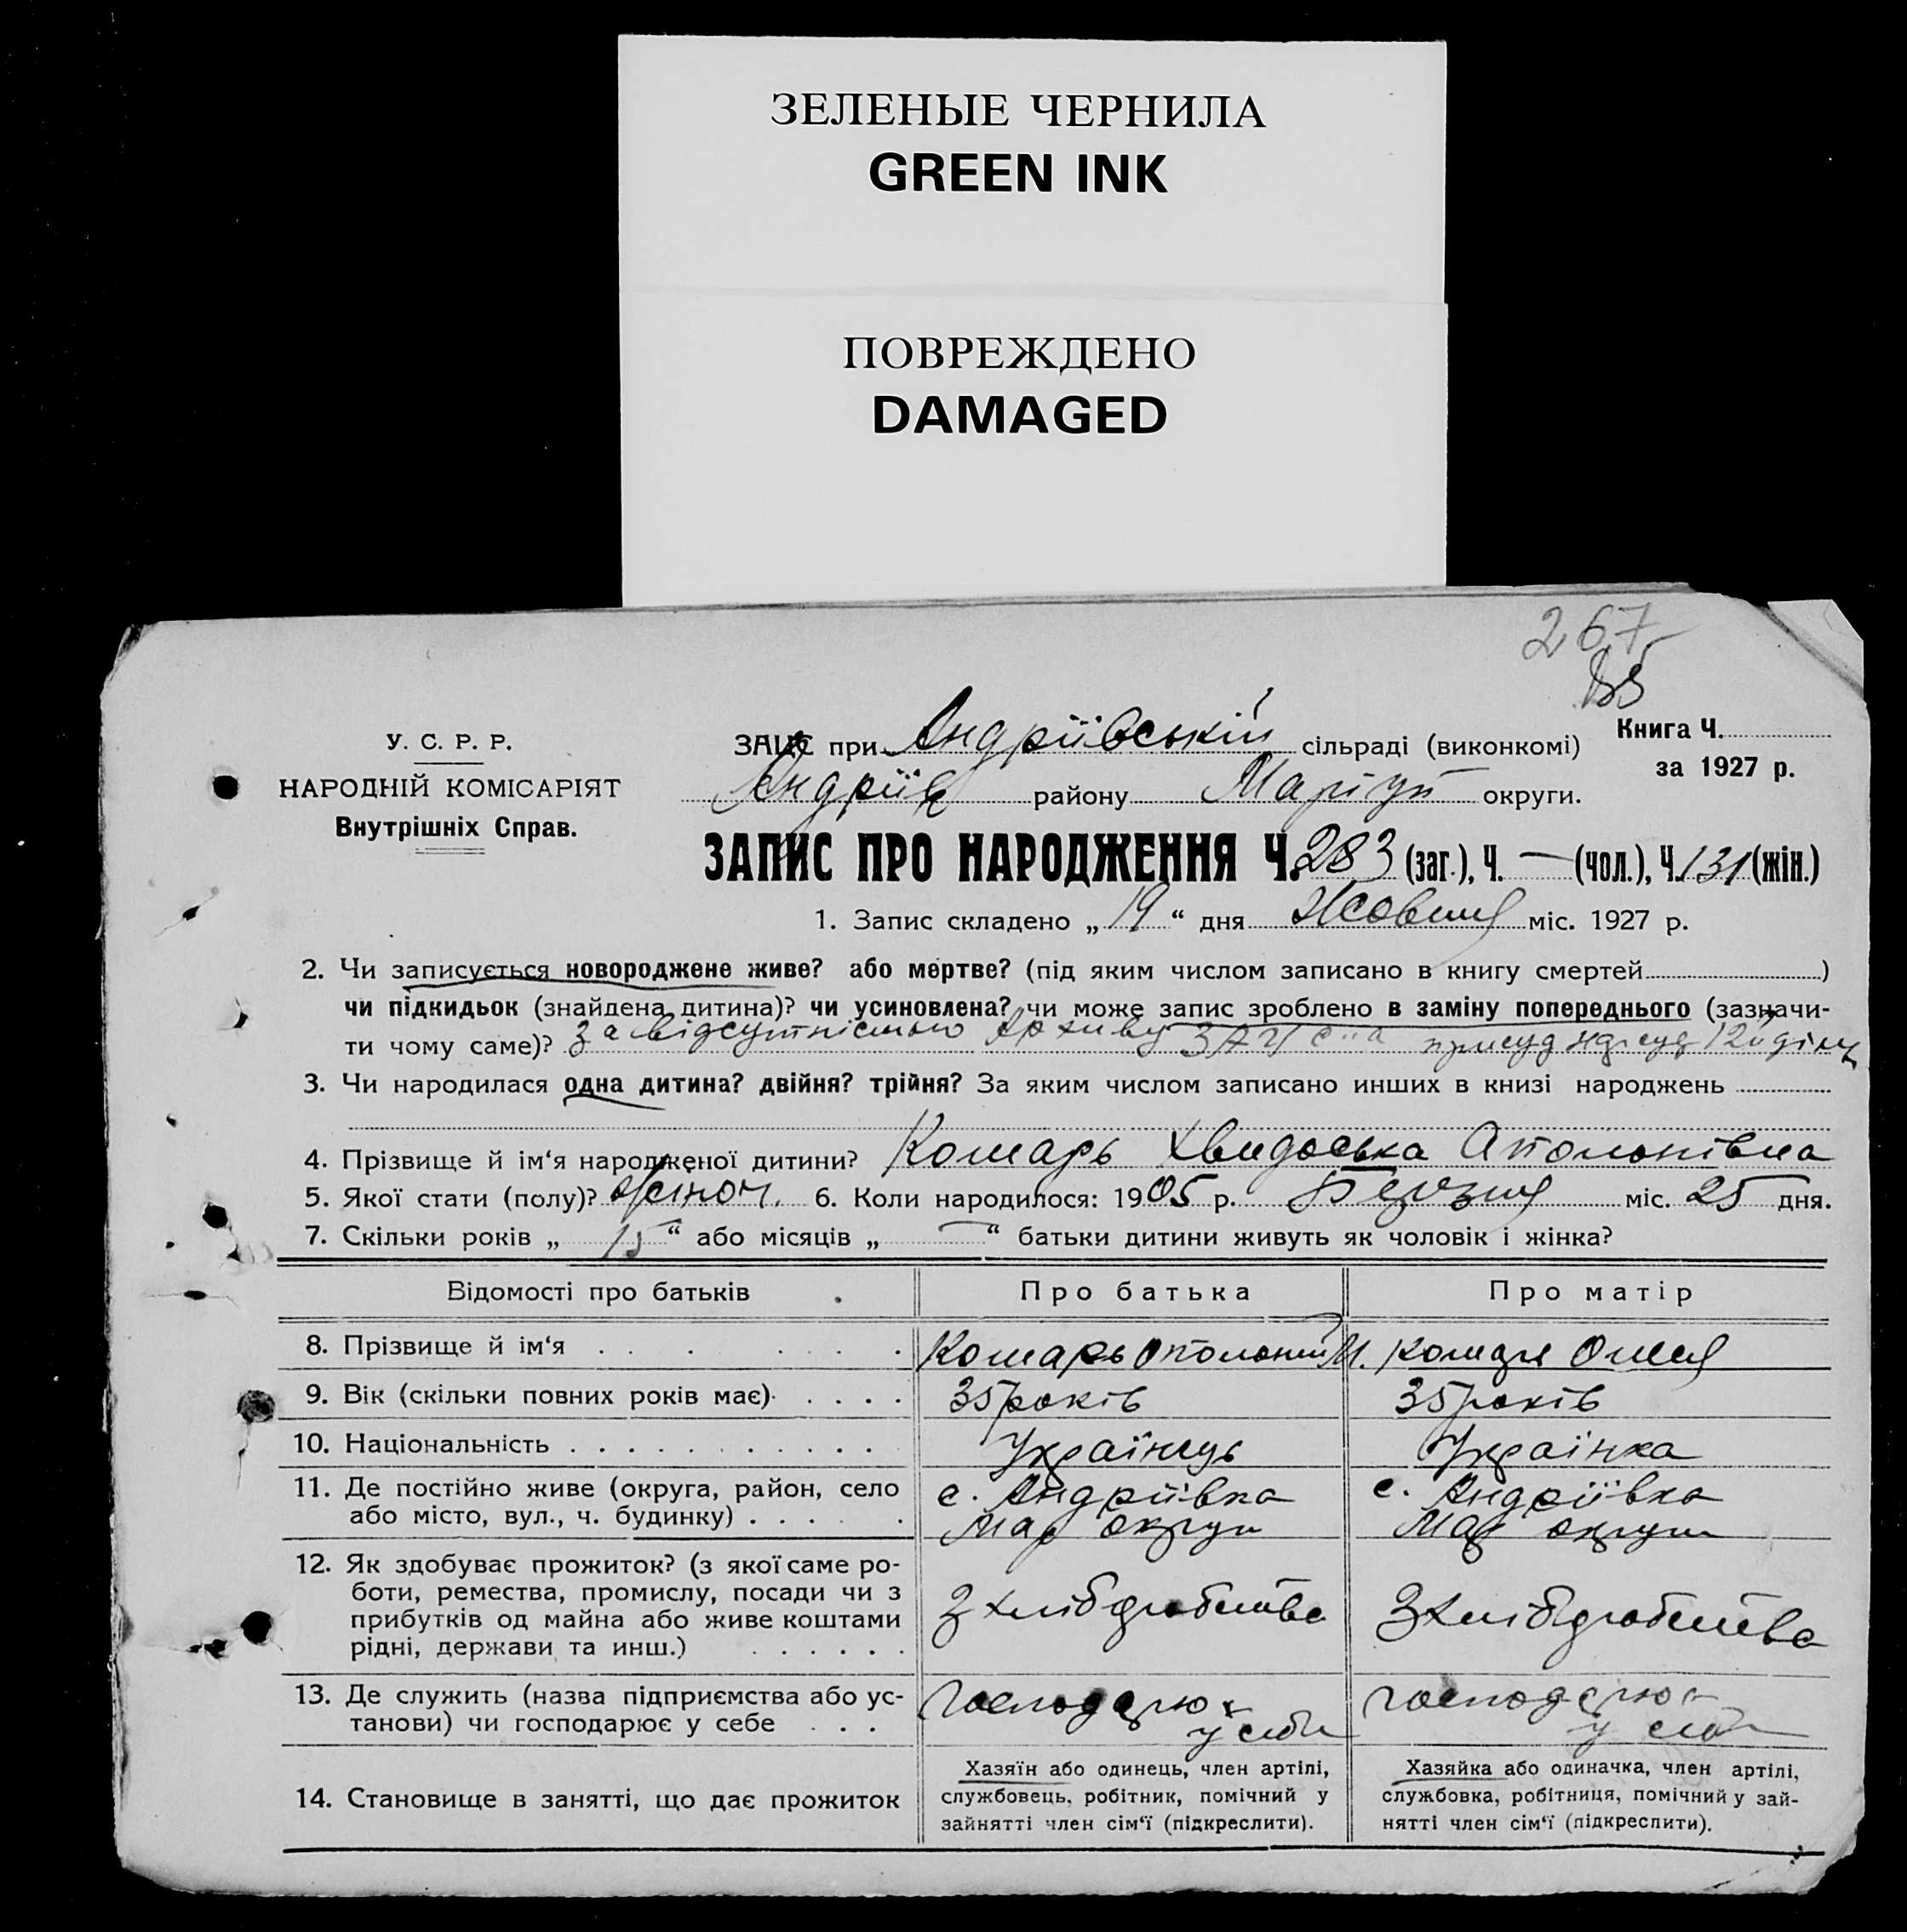 ЗЕЛЕНЫЕ ЧЕРНИЛА
GREEN INK
ПОВРЕЖДЕНО
DAMAGED
267
У. С. Р. Р.
НАРОДНІЙ КОМІСАРІЯТ
Внутрішніх Справ.
ЗАЦС при Андріївській сільраді (виконкомі)
Книга Ч.
за 1927 р.
Андріїв району Маріуп округи.
ЗАПИС ПРО НАРОДЖЕННЯ Ч. 283 (заг.), Ч. — (чол.), Ч. 131 (жін.)
1. Запис складено „ 19 “ дня Жовтня міс. 1927 р.
2. Чи записується новороджене живе? або мертве? (під яким числом записано в книгу смертей )
чи підкидьок (знайдена дитина)? чи усиновлена? чи може запис зроблено в заміну попереднього (зазначи-
ти чому саме)? за відсутністью Архиву ЗАЦС присуд нарсуд 12
3. Чи народилася одна дитина? двійня? трійня? За яким числом записано инших в книзі народжень
4. Прізвище й ім‘я народженої дитини? Комарь Хвидоська Аполонівна
5. Якої стати (полу)? жіноч. 6. Коли народилося: 1905 р. Березня міс. 25 дня.
7. Скільки років „ 15 “ або місяців „ — “ батьки дитини живуть як чоловік і жінка?
Відомості про батьків Про батька Про матір
8. Прізвище й ім‘я Комарь Ополоній И. Комарь
9. Вік (скільки повних років має) 35 років 35 років
10. Національність Українець Українка
11. Де постійно живе (округа, район, село
або місто, вул., ч. будинку)
с. Андріївка
Мар округи
с. Андріївка
Мар округи
12. Як здобуває прожиток? (з якої саме ро-
боти, ремества, промислу, посади чи з
прибутків од майна або живе коштами
рідні, держави та инш.)
З хліборобства
З хліборобства
13. Де служить (назва підприємства або ус-
танови) чи господарює у себе
Господарює
у себе
господарює
у себе
14. Становище в занятті, що дає прожиток
Хазяїн або одинець, член артілі,
службовець, робітник, помічний у
зайнятті член сім‘ї (підкреслити).
Хазяйка або одиначка, член артілі,
службовка, робітниця, помічний у зай-
нятті член сім‘ї (підкреслити).